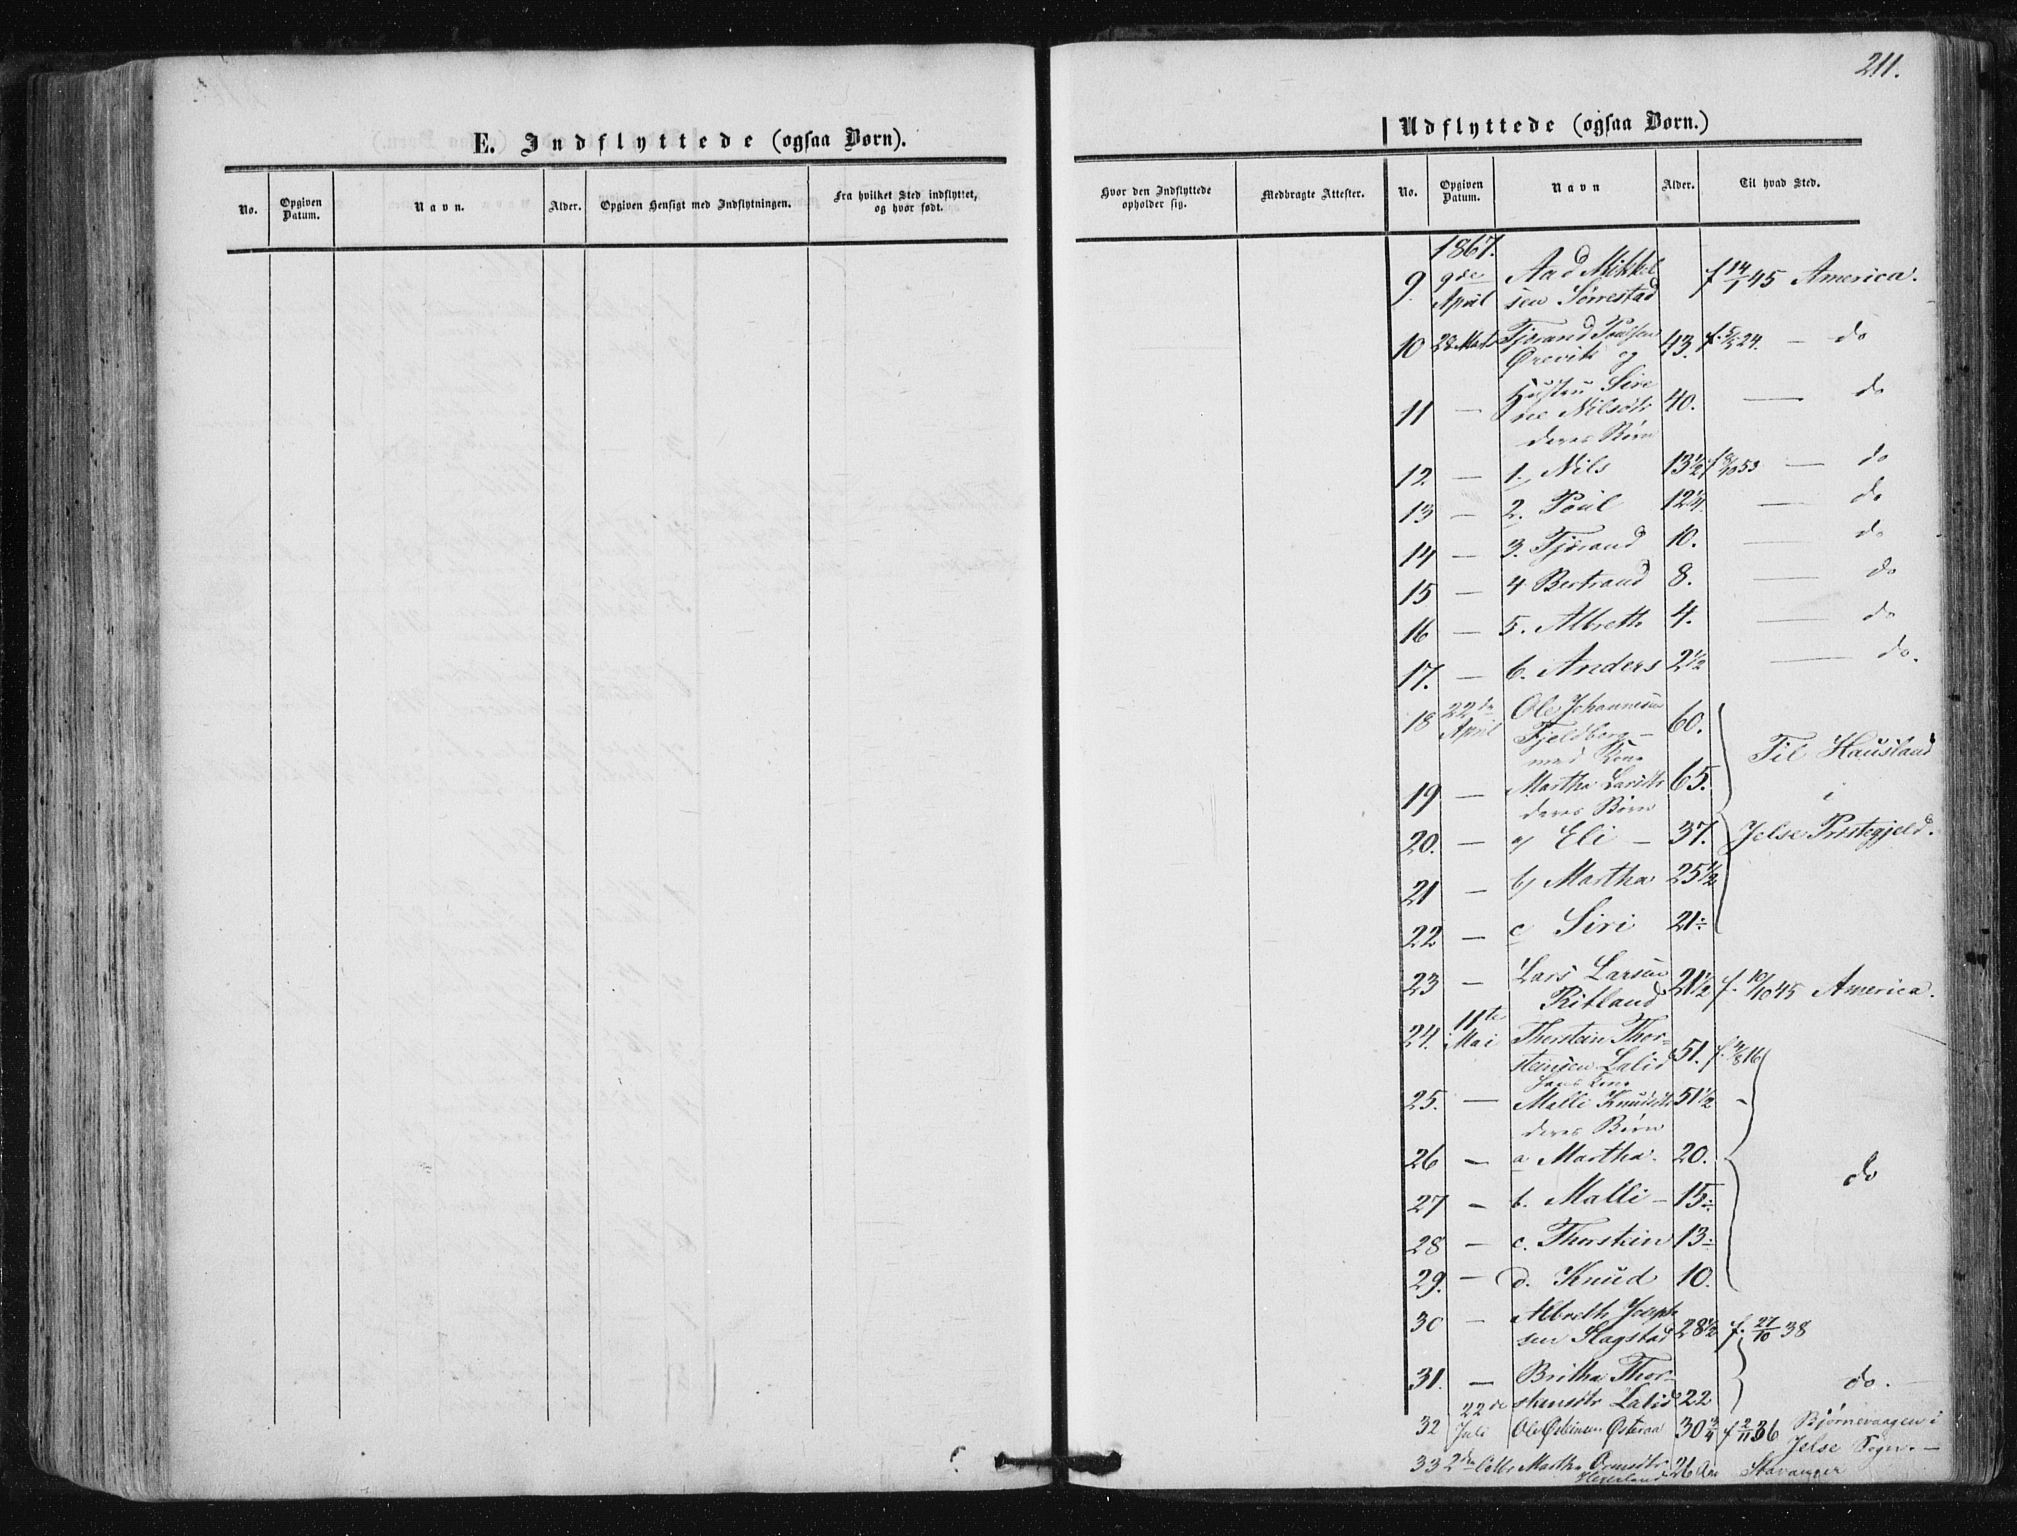 211.
E. Indflyttede (ogsaa Børn).
No.
Opgiven Datum.
Navn.
Alder.
Opgiven Hensigt med Indflytningen.
Fra hvilket Sted indflyttet, og hvor født.
Udflyttede (ogsaa Børn.)
Hvor den Indflyttede opholder sig.
Medbragte Attester.
No.
Opgiven Datum.
Navn
Alder.
Til hvad Sted.
1867.
9. 9de Aad Mikkel f 14/1 45 America.
April sen Sørrestad
10 28 Marts Tjerand Poulsen 43. f. 24. — do
og
11 — Hustru Siri 40. — do
Nilsdtr
deres Børn
12 — 1. Nils 13½ 53 — do
13 — 2. Poul 12¼ — do
14 — 3. Tjerand 10. — do
15 — 4 Bertrand 8. — do
16 — 5. Albreth 4. — do
17. — 6. Anders 2½ — do.
18 22de Ole Johannesen 60.
April Fjeldberg —
med Kone
Til Haustand
19 — Martha Larsdtr 65.
i
deres Børn
20. — a) Eli — 37. Jelse Præstegjeld.
21 — b) Martha 25½
22 — c Siri 21
23 — Lars Larsen 21½ f. 10/10 45 America.
Ritland
24. 11te Thorstein Thor-
Mai steinsen Lalid 51. f. 3/8 16
hans Kone
25. — Malli Knudsdtr 51½
deres Børn
26 — a Martha. 20.
do
27 — b. Malli — 15
28 — c. Thorstein 13
29. — d. Knud 10.
30 — Albreth Joseph
sen Slagstad 28½ f. 27/10 38
31. — Britha Thor-
steinsdtr Lalid 22 do.
32 22de Juli Ole Østensen Østeraa 30¾ f 2/11 36 Bjørnevaagen i
Jelse Sogn. —
33 2den Martha Ormsdtr 26 Stavanger